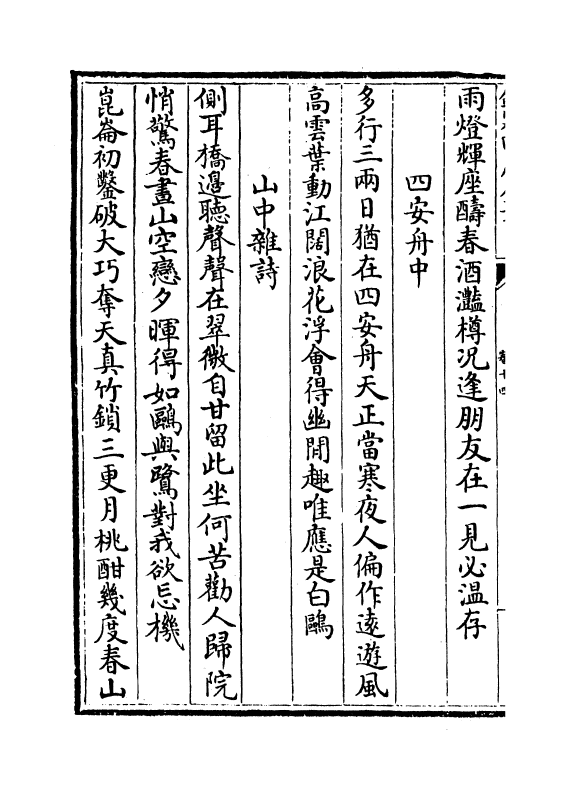 雨燈輝座醻春酒灩樽况逢朋友在一見必溫存
四安舟中
多行三兩日猶在四安舟天正當寒夜人偏作遠遊風
高雲葉動江闊浪花浮會得幽閒趣唯應是白鷗
山中雜詩
側耳橋邊聽聲聲在翠微自甘留此坐何苦勸人歸院
悄驚春晝山空戀夕暉得如鷗與鷺對我欲忘機
崑崙初鑿破大巧奪天真竹鎖三更月桃酣幾度春山
卷十四